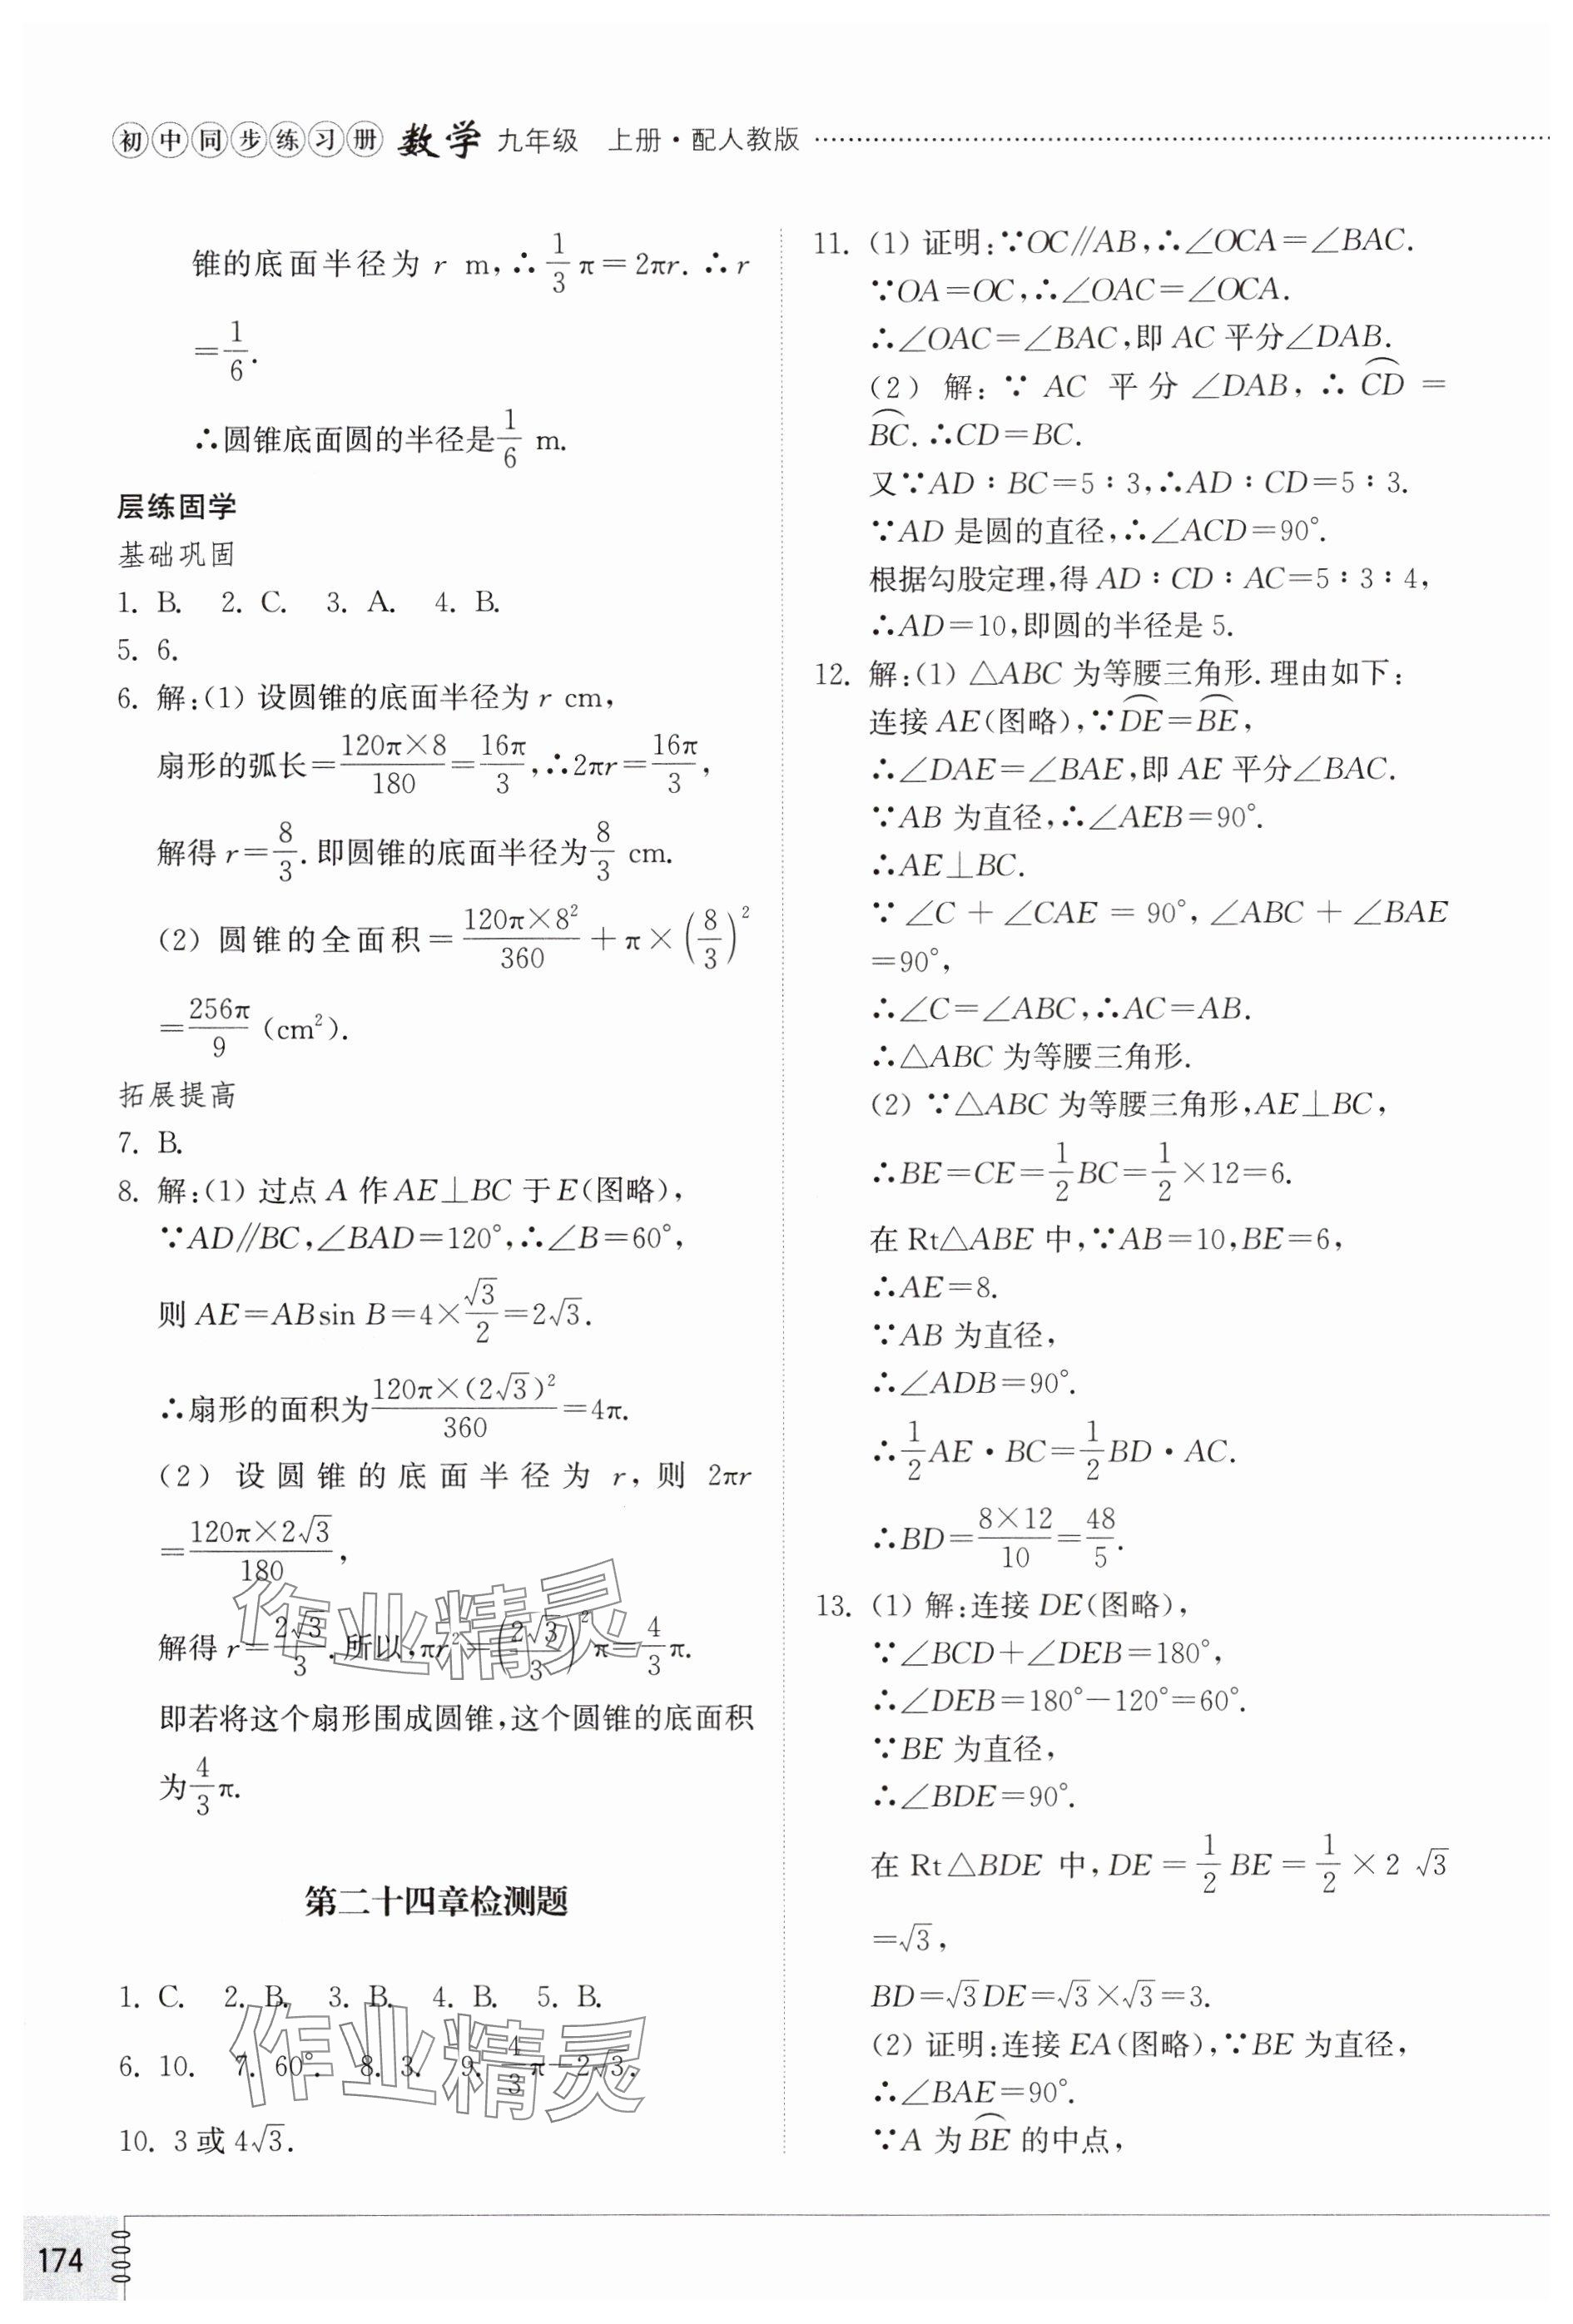 初中同步练习册 数学 九年级 上册·配人教版
锥的底面半径为 r m,∴1/3π=2πr.∴r
=1/6.
∴圆锥底面圆的半径是1/6 m.
层练固学
基础巩固
1. B. 2. C. 3. A. 4. B.
5. 6.
6. 解:(1) 设圆锥的底面半径为 r cm,
扇形的弧长=120π×8/180=16π/3,∴2πr=16π/3,
解得 r=8/3.即圆锥的底面半径为8/3 cm.
(2) 圆锥的全面积=120π×8²/360+π×(8/3)²
=256π/9(cm²).
拓展提高
7. B.
8. 解:(1) 过点 A 作 AE⊥BC 于 E(图略),
∵AD∥BC,∠BAD=120°,∴∠B=60°,
则 AE=ABsin B=4×√3/2=2√3.
∴扇形的面积为120π×(2√3)²/360=4π.
(2) 设圆锥的底面半径为 r,则 2πr
=120π×2√3/180,
解得 r=2√3/3.所以,πr²=(2√3/3)²π=4/3π.
即若将这个扇形围成圆锥,这个圆锥的底面积
为4/3π.
第二十四章检测题
1. C. 2. B. 3. B. 4. B. 5. B.
6. 10. 7. 60°. 8. 3. 9. 4/3π-2√3.
10. 3 或 4√3.
11. (1) 证明:∵OC∥AB,∴∠OCA=∠BAC.
∵OA=OC,∴∠OAC=∠OCA.
∴∠OAC=∠BAC,即 AC 平分∠DAB.
(2) 解:∵AC 平分∠DAB,∴⌒CD=
⌒BC.∴CD=BC.
又∵AD∶BC=5∶3,∴AD∶CD=5∶3.
∵AD 是圆的直径,∴∠ACD=90°.
根据勾股定理,得 AD∶CD∶AC=5∶3∶4,
∴AD=10,即圆的半径是 5.
12. 解:(1) △ABC 为等腰三角形.理由如下:
连接 AE(图略),∵⌒DE=⌒BE,
∴∠DAE=∠BAE,即 AE 平分∠BAC.
∵AB 为直径,∴∠AEB=90°.
∴AE⊥BC.
∵∠C+∠CAE=90°,∠ABC+∠BAE
=90°,
∴∠C=∠ABC,∴AC=AB.
∴△ABC 为等腰三角形.
(2) ∵△ABC 为等腰三角形,AE⊥BC,
∴BE=CE=1/2BC=1/2×12=6.
在 Rt△ABE 中,∵AB=10,BE=6,
∴AE=8.
∵AB 为直径,
∴∠ADB=90°.
∴1/2AE·BC=1/2BD·AC.
∴BD=8×12/10=48/5.
13. (1) 解:连接 DE(图略),
∵∠BCD+∠DEB=180°,
∴∠DEB=180°-120°=60°.
∵BE 为直径,
∴∠BDE=90°.
在 Rt△BDE 中,DE=1/2BE=1/2×2√3
=√3,
BD=√3DE=√3×√3=3.
(2) 证明:连接 EA(图略),∵BE 为直径,
∴∠BAE=90°.
∵A 为⌒BE 的中点,
174
作业精灵
作业精灵